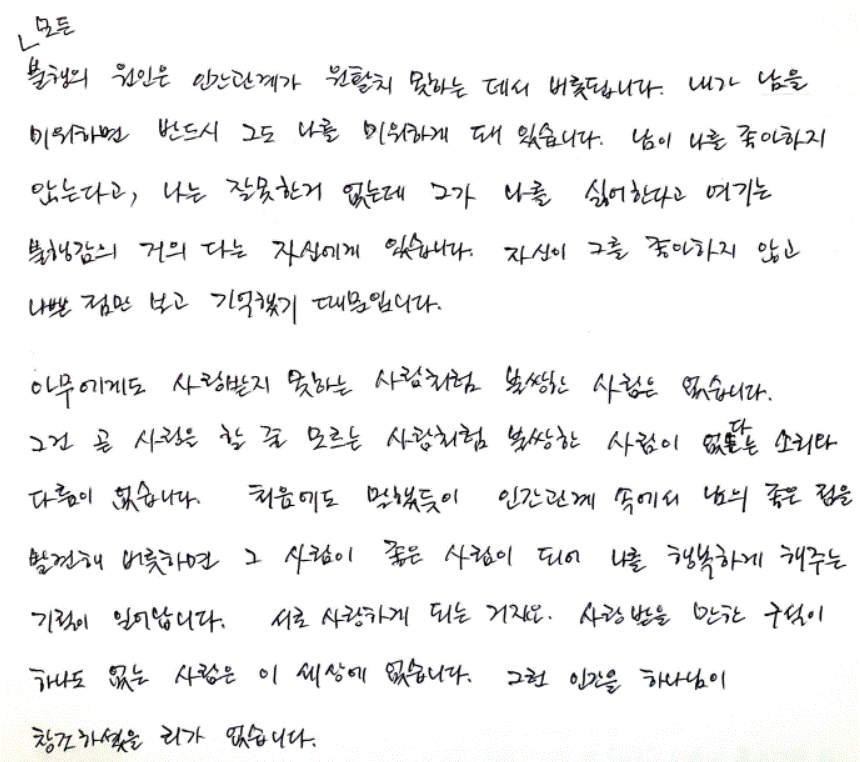 모든
불행의 원인은 인간관계가 원활치 못하는 데서 비롯됩니다. 내가 남을
미워하면 반드시 그도 나를 미워하게 돼 있습니다. 남이 나를 좋아하지
않는다고, 나는 잘못한거 없는데 그가 나를 싫어한다고 여기는
불행감의 거의 다는 자신에게 있습니다. 자신이 그를 좋아하지 않고
나쁜 점만 보고 기억했기 때문입니다.
아무에게도 사랑받지 못하는 사람처럼 불쌍한 사람은 없습니다.
그건 곧 사랑을 할 줄 모르는 사람처럼 불쌍한 사람이 없다는 소리와
다름이 없습니다. 처음에도 말했듯이 인간관계 속에서 남의 좋은 점을
발견해 버릇하면 그 사람이 좋은 사람이 되어 나를 행복하게 해주는
기적이 일어납니다. 서로 사랑하게 되는 거지요. 사랑 받을 만한 구석이
하나도 없는 사람은 이 세상에 없습니다. 그런 인간을 하나님이
창조하셨을 리가 없습니다.